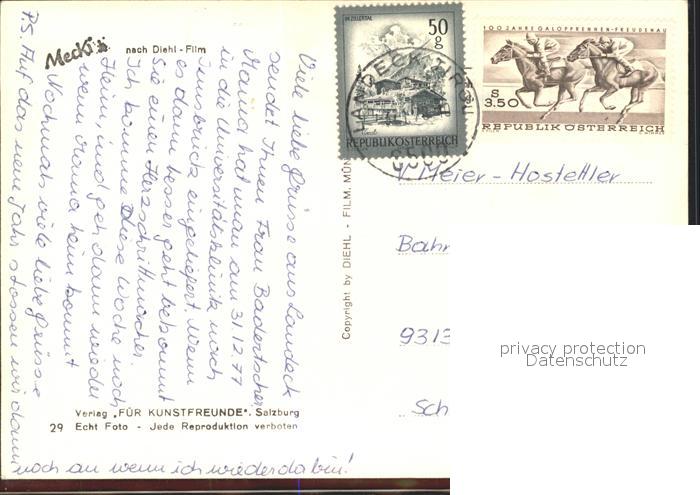 Mecki
nach Diehl-Film
Viele liebe Grüsse aus Landeck
sendet Ihnen Frau Badertscher.
Mama hat man am 31.12.77
in die Universitätsklinik nach
Innsbruck eingeliefert. Wenn
es dann besser geht bekommt
Sie einen Herzschrittmacher.
Ich komme diese Woche noch
Heim und geh dann wieder
wenn Mama heim kommt
Nochmals viele liebe Grüsse
P.S. Auf das neue Jahr stossen wir dann
noch an wenn ich wieder da bin!
Verlag „FÜR KUNSTFREUNDE". Salzburg
29 Echt Foto - Jede Reproduktion verboten
Copyright by DIEHL - FILM. MÜN
IM ZILLERTAL
50
g
REPUBLIK ÖSTERREICH
100 JAHRE GALOPPRENNEN-FREUDENAU
S
3.50
REPUBLIK ÖSTERREICH
LANDECK, TIROL
6500
Meier-Hostettler
Bahn
9313
Sch
privacy protection
Datenschutz